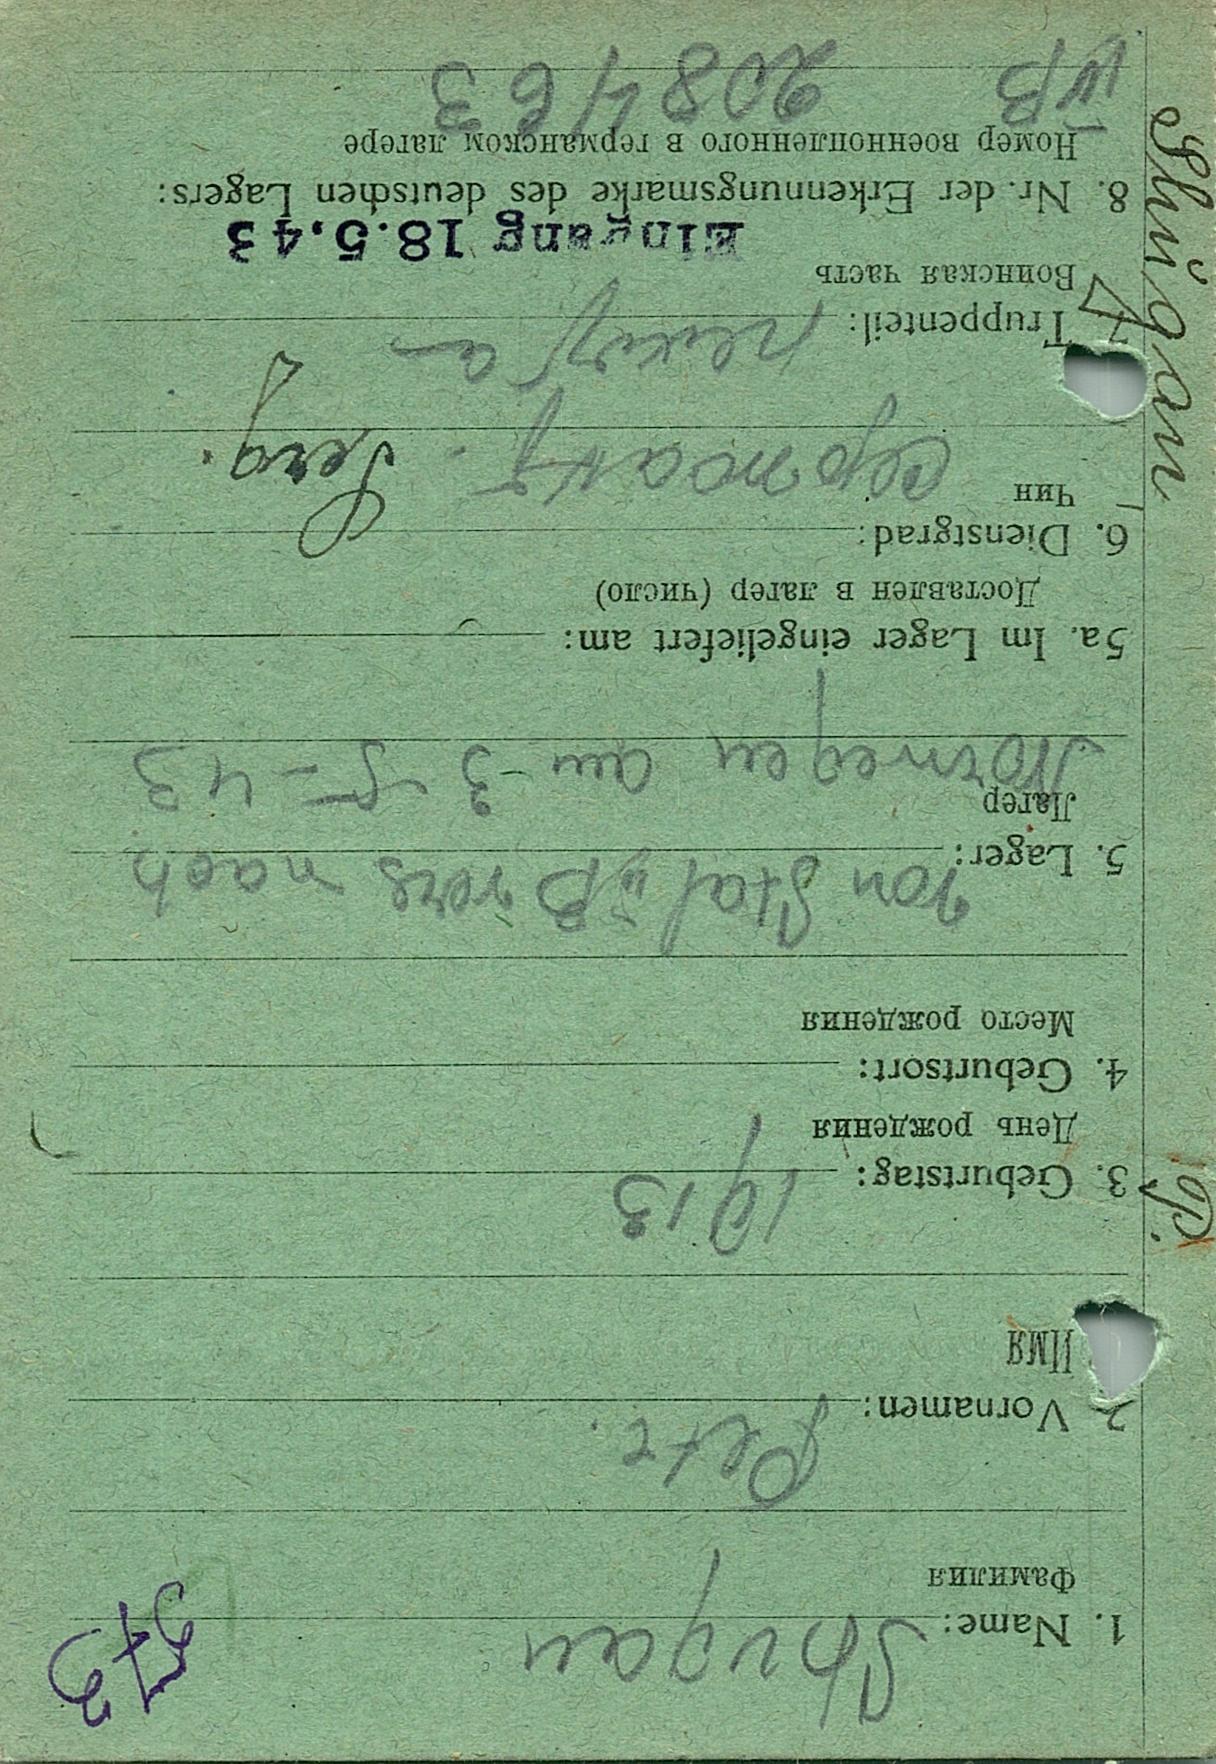 973
1. Name: Shugau
Фамилия
Petr.
2. Vornamen:
Имя
1913
3. Geburtstag:
День рождения
4. Geburtsort:
Место рождения
von Stal VIB vers nach
5. Lager:
Лагер
Norwegen am 3-5-43
5a. Im Lager eingeliefert am:
Доставлен в лагер (число)
6. Dienstgrad:
Чин
сержант. Serg.
пехота
7. Truppenteil:
Воинская часть
Eingang 18.5.43
8. Nr. der Erkennungsmarke des deutschen Lagers:
Номер военнопленного в германском лагере
VIB 208463